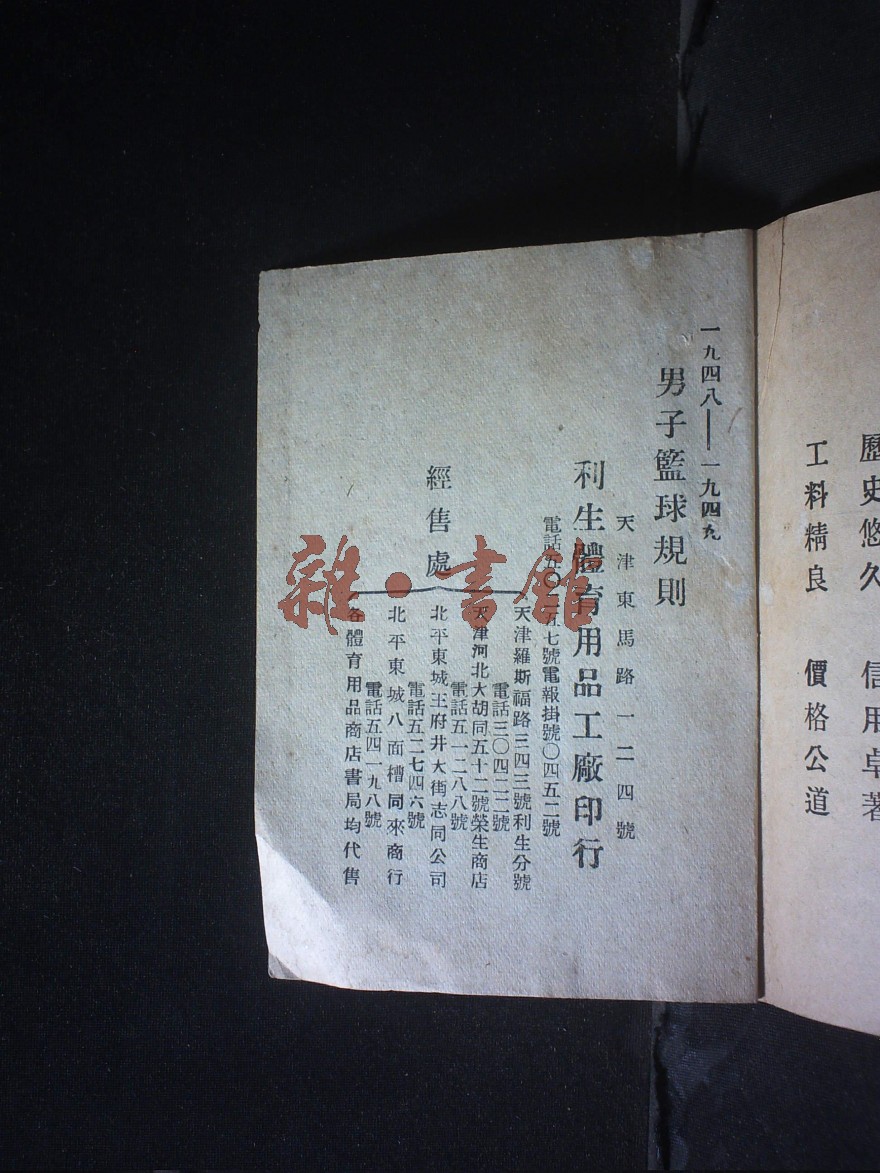 歷史悠久　信用卓著
工料精良　價格公道
一九四八——一九四九
男子籃球規則
天津東馬路一二四號
利生體育用品工廠印行
電話五〇二五七號電報掛號〇四五二號
經售處
天津羅斯福路三四三號利生分號
電話三〇四二二號
天津河北大胡同五十二號榮生商店
電話五一二八八號
北平東城王府井大街志同公司
電話五二七四六號
北平東城八面槽同來商行
電話五四一九八號
各體育用品商店書局均代售
雜·書館